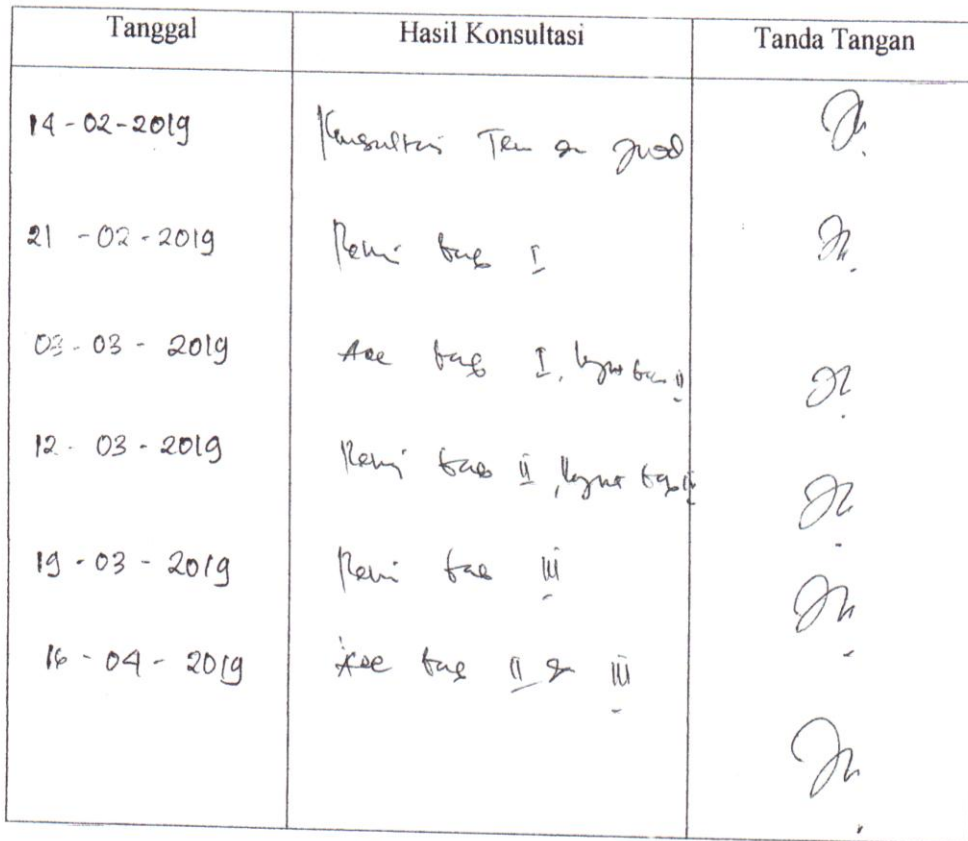 Tanggal Hasil Konsultasi Tanda Tangan
14-02-2019 Konsultasi
21-02-2019 Revisi bab I
03-03-2019 Acc bab I, bab II
12-03-2019 Revisi bab II, bab
19-03-2019 Revisi bab III
16-04-2019 Acc bab II & III